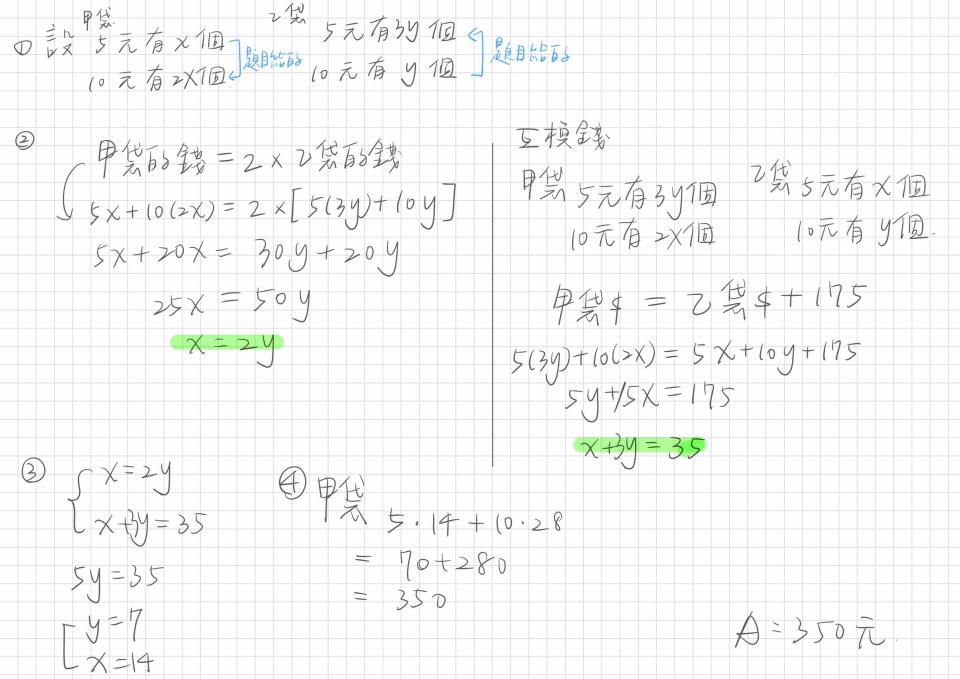 ① 設 甲袋 5元有x個 10元有2x個 題目給的
乙袋 5元有3y個 10元有y個 題目給的
②
甲袋的錢=2×乙袋的錢
5x+10(2x)=2×[5(3y)+10y]
5x+20x=30y+20y
25x=50y
x=2y
互換錢
甲袋 5元有3y個 乙袋 5元有x個
10元有2x個 10元有y個.
甲袋$ = 乙袋$+175
5(3y)+10(2x)=5x+10y+175
5y+15x=175
x+3y=35
③
x=2y
x+3y=35
5y=35
y=7
x=14
④ 甲袋
5·14+10·28
= 70+280
= 350
A=350元.